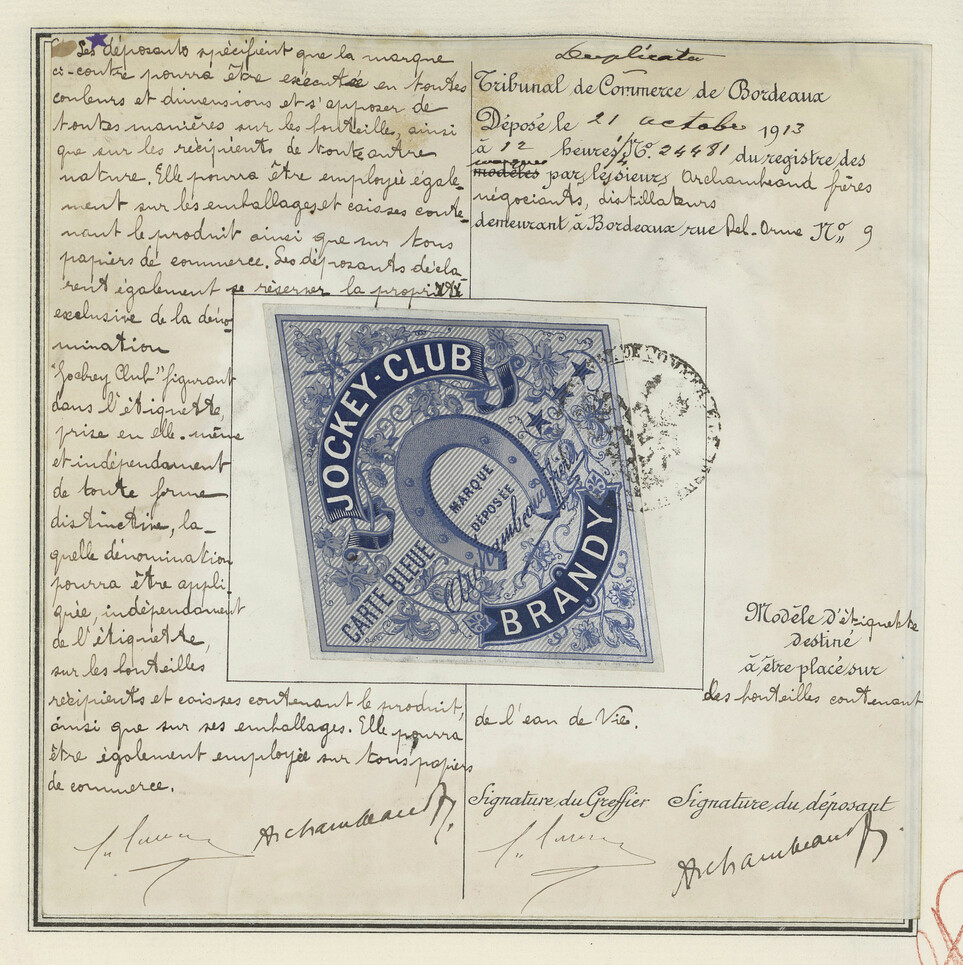 Les déposants spécifient que la marque
ci-contre pourra être exécutée en toutes
couleurs et dimensions et s'apposer de
toutes manières sur les bouteilles, ainsi
que sur les récipients de toute autre
nature. Elle pourra être employée égale-
ment sur les emballages et caisses conte-
nant le produit ainsi que sur tous
papiers de commerce. Les déposants décla
rent également se réserver la propriété
exclusive de la déno
mination
"Jockey Club" figurant
dans l'étiquette,
prise en elle-même
et indépendament
de toute forme
distinctive, la-
quelle dénomination
pourra être appli-
quée, indépendament
de l'étiquette,
sur les bouteilles
récipients et caisses contenant le produit,
ainsi que sur ses emballages. Elle pourra
être également employée sur tous papiers
de commerce.
Archambeaud
Duplicata
Tribunal de Commerce de Bordeaux
Déposé le 21 octobre 1913
à 12 heures, No. 24481 du registre des
marques
modèles par les sieurs Archambeaud frères
négociants, distillateurs
demeurant à Bordeaux rue Del-Orme No. 9
JOCKEY-CLUB
MARQUE
DÉPOSÉE
CARTE BLEUE
Archambeaud frères
BRANDY
Modèle d'étiquette
destiné
à être placé sur
des bouteilles contenant
de l'eau de Vie.
Signature du Greffier Signature du déposant
Archambeaud